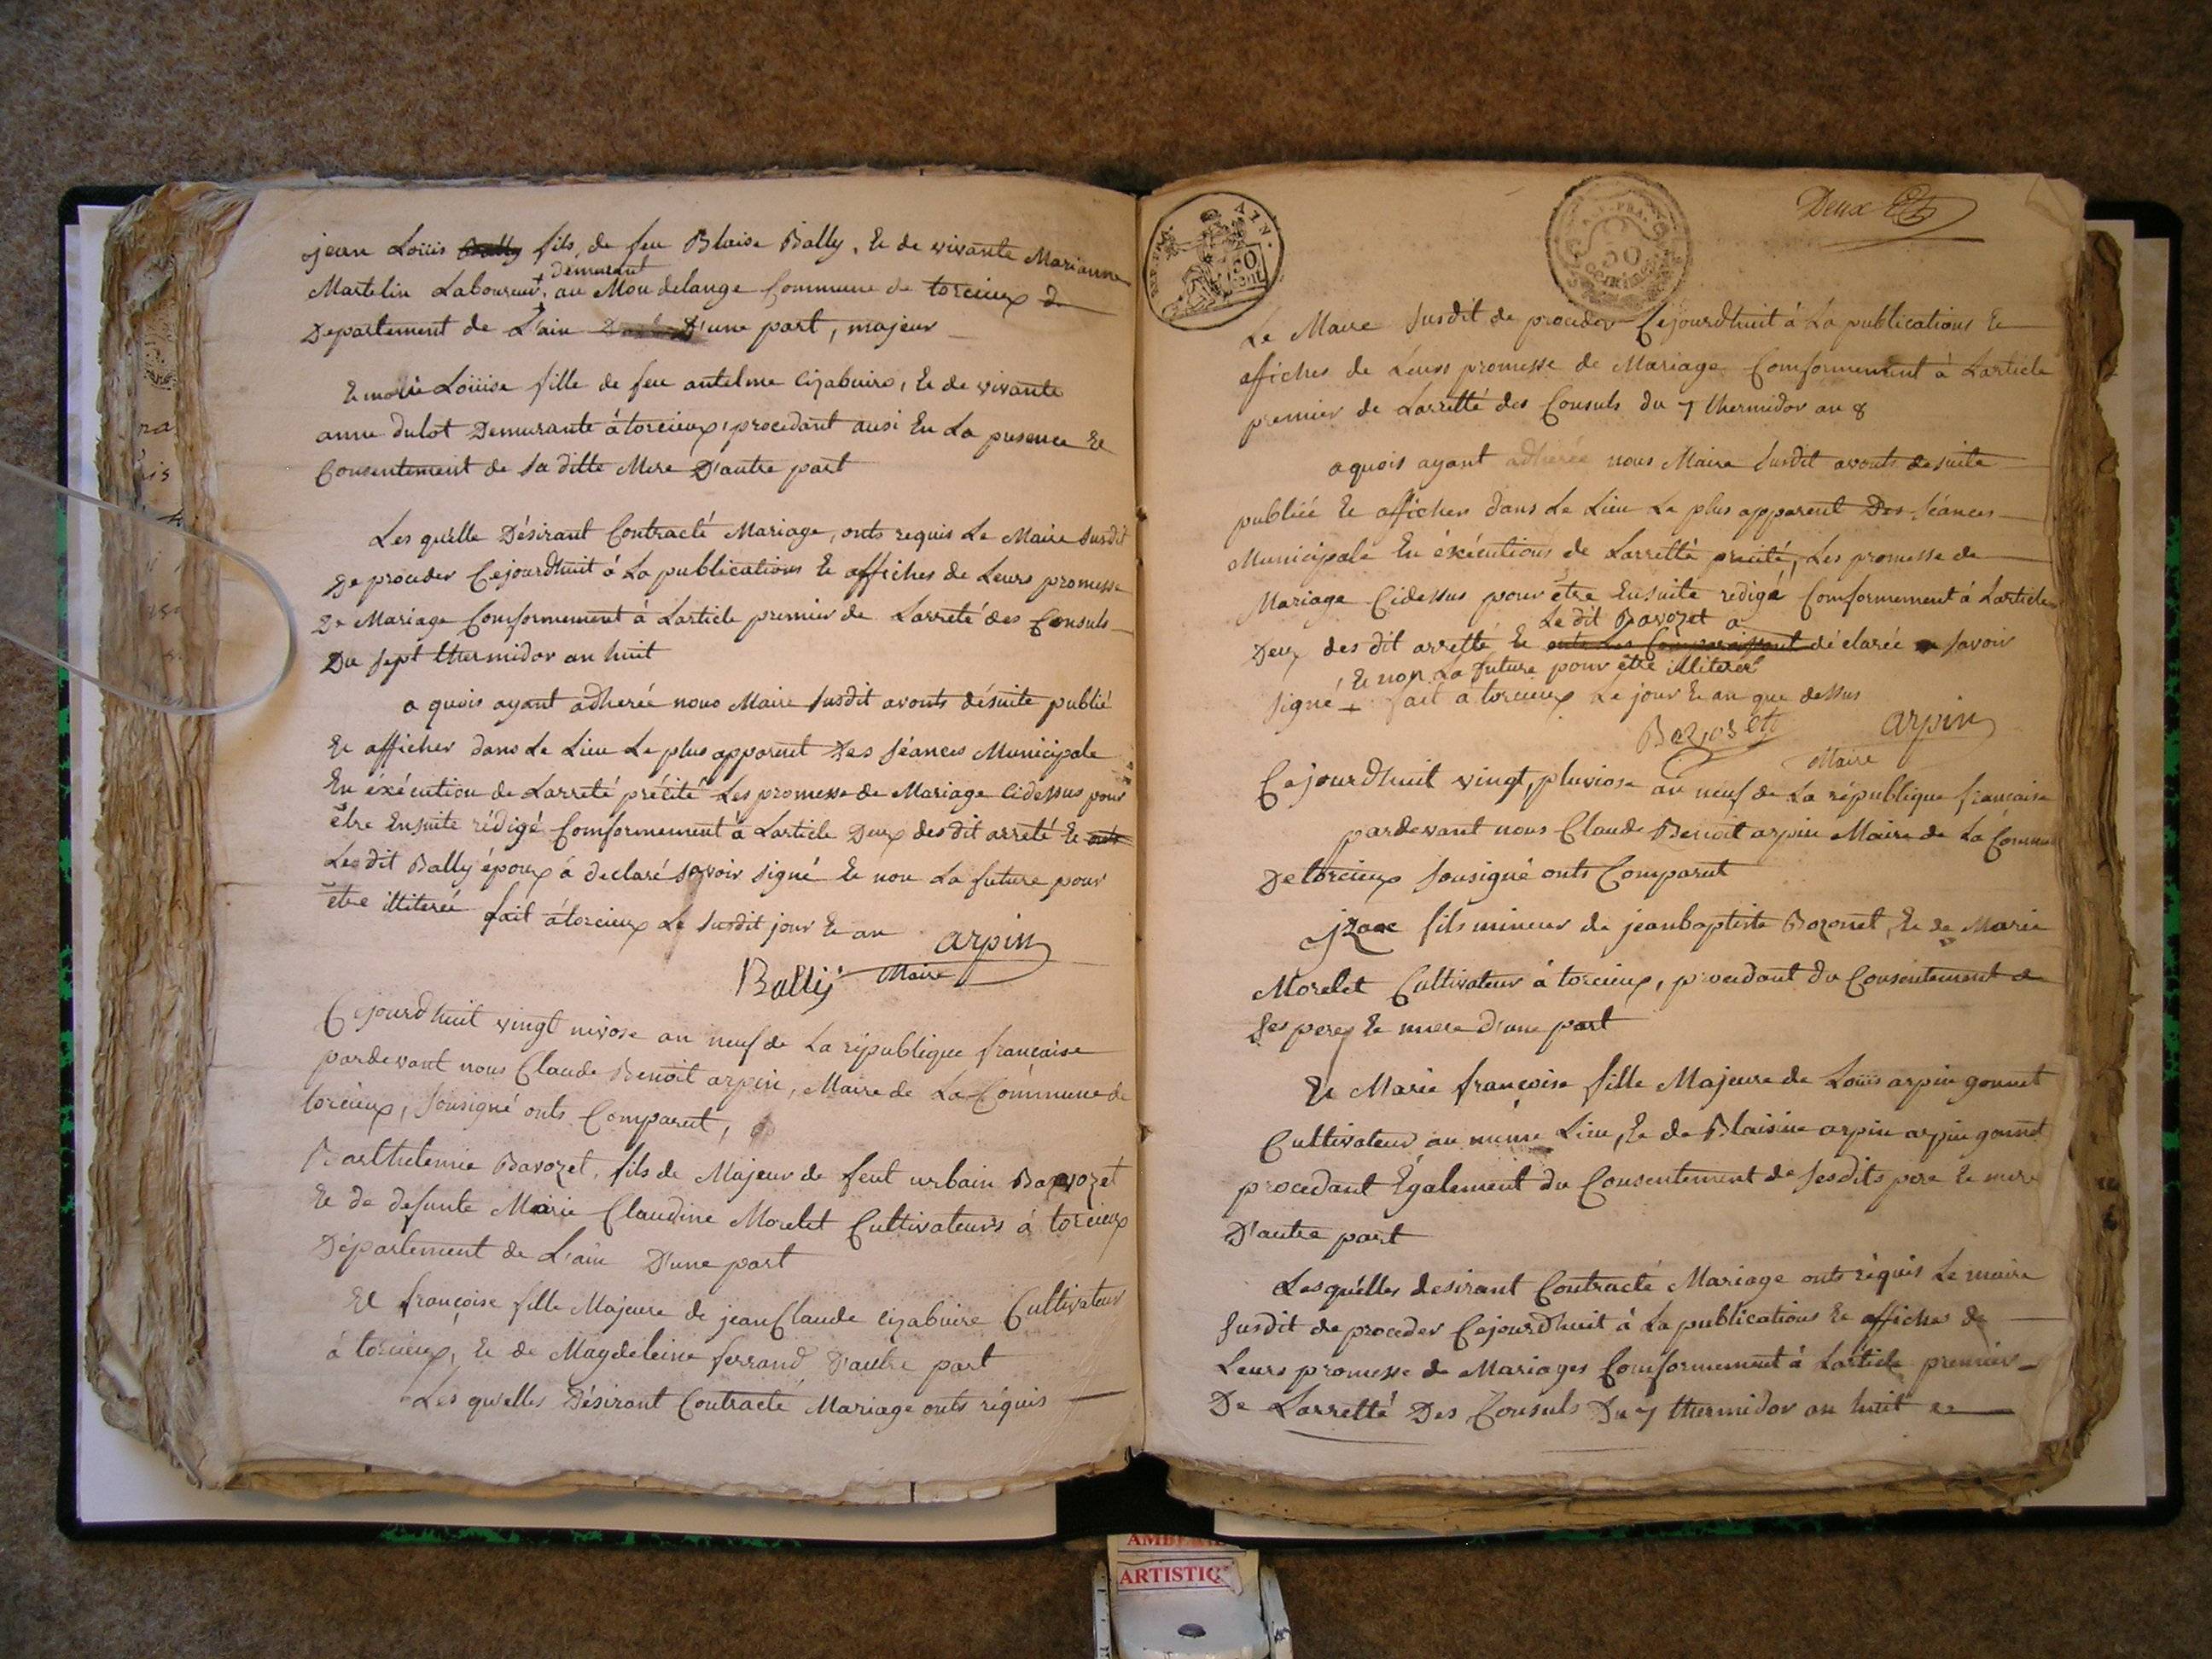 jean Loüis Bally fils de feu Blaise Bally, Et de vivante Marianne
demurant
Martelin Laboureur, au Mon delange Commune de torcieux
Departement de L'ain D'une part, majeur
Et marie Loüise fille de feu antelme Cizabuire, Et de vivante
anne dulot Demurante à torcieux, procedant ausi En La presence Et
Consentement de sa ditte Mere D'autre part
Les quélle Désirant Contracté Mariage, onts requis Le Maire susdit
De proceder Cejourdhuit à La publications Et affiches de Leurs promesse
De Mariage Comformement à Larticle premier de Larreté des Consuls
Du sept thermidor an huit
a quois ayant adherée nous Maire susdit avonts désuite publié
Et afficher dans Le Lieu Le plus apparent Des séances Municipale
En éxécution de Larreté précité Les promesse de Mariage Cidessus pour
être Ensuite rédigé Comformement à Larticle Deux des dit arreté Et onts
Ledit Bally époux à declaré savoir signé Et non La future pour
être illiterée fait à torcieux Le susdit jour Et an
arpin
Bally Maire
Cejourdhuit vingt nivose an neuf de La république francaise
pardevant nous Claude Benoit arpin, Maire de La Commune de
torcieux, sousigné onts Comparut,
Barthelemie Bavozet, fils de Majeur de feut urbain Bavozet
Et de defunte Marie Claudine Morelet Cultivateurs à torcieux
Département de L'ain D'une part
Et françoise fille Majeure de jean Claude Cizabuire Cultivateur
à torcieux, Et de Magdeleine ferrand D'autre part
Les quelles Désirant Contracté Mariage onts réquis
AIN
REP. FRA.
50
cent
50
centimes
Deux
Le Maire susdit de proceder Cejourdhuit à La publications Et
affiches de Leurs promesse de Mariage Comformement à Larticle
premier de Larretté des Consuls du 7 thermidor an 8
a quois ayant adherée nous Maire susdit avonts desuite
publiée Et afficher dans Le Lieu Le plus apparent Des séances
Municipale En éxécutions de Larretté précité, Les promesse de
Mariage Cidessus pour être Ensuite redigé Comformement à Larticle
Le dit Bavozet a
Deux des dit arretté Et onts Les Comparaissant déclarée savoir
Et non La future pour être illiteree
signé fait à torcieux Le jour Et an que dessus
Bavozet arpin
Maire
Cejourdhuit vingt, pluviose an neuf de La république francaise
pardevant nous Claude Benoit arpin Maire de La Commune
De torcieux sousigné onts Comparut
jzaac fils mineur de jean baptiste Bozonet, Et de Marie
Morelet Cultivateur à torcieux, procedant du Consentement de
ses peres Et mere d'une part
Et Marie françoise fille Majeure de Loüis arpin gonnet
Cultivateur au même Lieu, Et de Blaisine arpin arpin gonnet
procedant Également du Consentement de sesdits pere Et mere
D'autre part
Lesquélles desirant Contracté Mariage onts réquis Le maire
susdit de proceder Cejourdhuit à La publications Et affiches de
Leurs promesse de Mariages Comformement à Larticle premier
De Larretté Des Consuls Du 7 thermidor an huit
ARTISTIQ